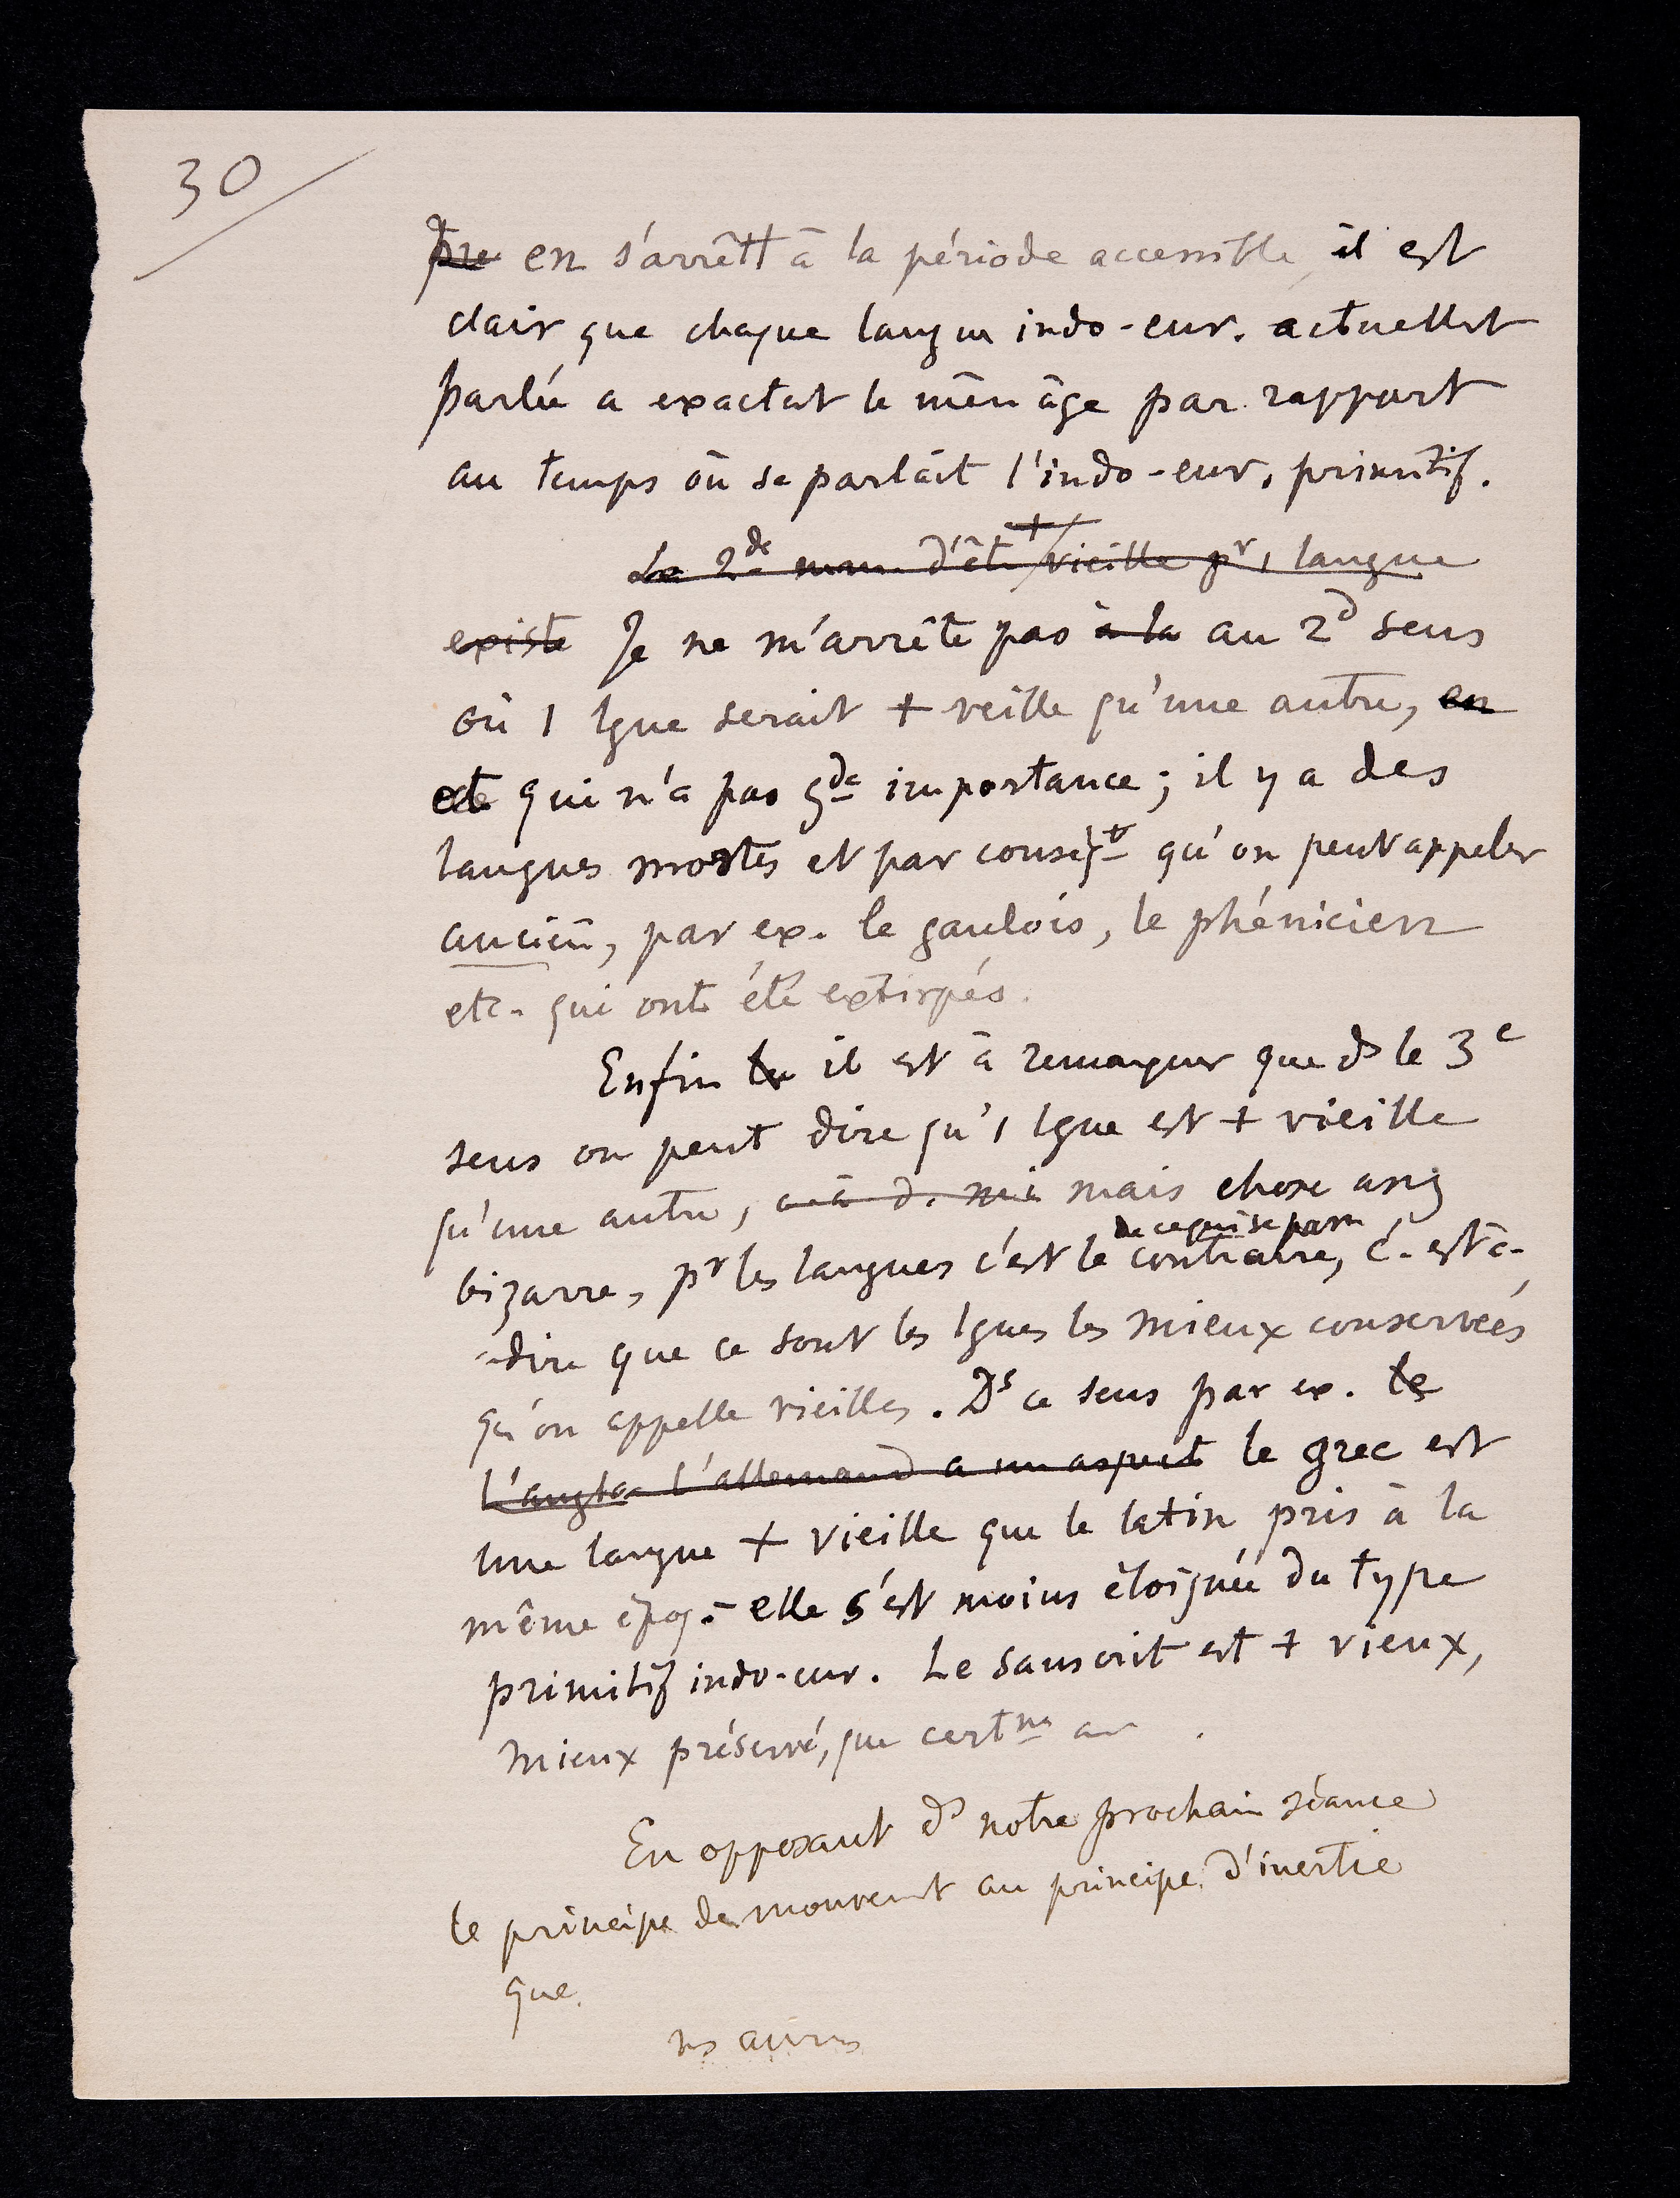 30
pre en s'arrêtt à la période accessible il est
clair que chaque langue indo-eur. actuellt
parlée a exactet le mêm âge par rapport
au temps où se parlait l'indo-eur. primitif.
La 2de d'êt + vieille pr 1 langue
existe Je ne m'arrête pas à la au 2d sens
où 1 lgue serait + veille qu'une autre, en
et qui n'a pas gde importance ; il y a des
langues mortes et par conségt qu'on peut appeler
ancien, par ex. le gaulois, le phénicien
etc. qui ont été extirpés.
Enfin le il est à remarquer que ds le 3e
sens on peut dire qu'1 lgue est + vieille
qu'une autre, c-à-d. mi mais chose assz
de ce qui se passe
bizarre, pr les langues c'est le contraire, c.-est-à-
-dire que ce sont les lgues les mieux conservées
qu'on appelle vieilles. Ds ce sens par ex. le
l'angla- l'allemand a un aspect le grec est
une langue + vieille que le latin pris à la
même époq. - elle s'est moins éloignée du type
primitif indo-eur. Le sanscrit est + vieux,
mieux préservé, que certnes
En opposant ds notre prochain séance
le principe de mouvemt au principe d'inertie
que
ns avons